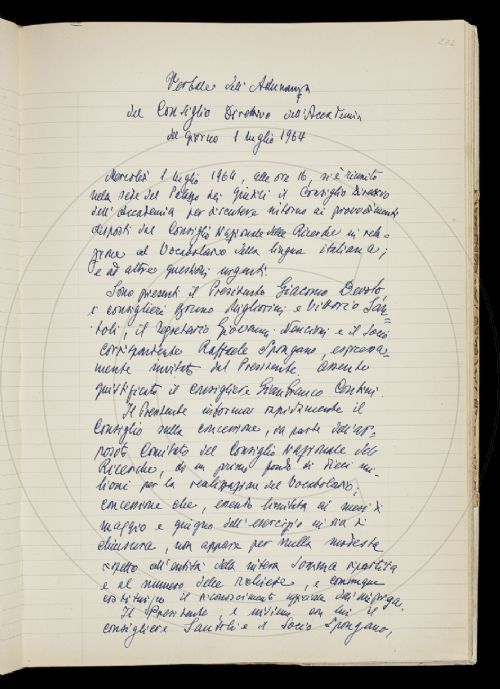 Verbale dell'Adunanza
del Consiglio Direttivo dell'Accademia
del giorno 1 luglio 1964
Mercoledì 1 luglio 1964, alle ore 16, si è riunito
nella sede del Palazzo dei Giudici il Consiglio Direttivo
dell'Accademia per discutere intorno ai provvedimenti
disposti dal Consiglio Nazionale delle Ricerche in rela-
zione al Vocabolario della lingua italiana;
e ad altre questioni urgenti.
Sono presenti il Presidente Giacomo Devoto,
i consiglieri Bruno Migliorini e Vittorio San-
toli, il Segretario Giovanni Nencioni e il Socio
corrispondente Raffaele Spongano, espressa-
mente invitato dal Presidente. Assente
giustificato il consigliere Gianfranco Contini.
Il Presidente informa rapidamente il
Consiglio sulla concessione, da parte dell'ap-
posito Comitato del Consiglio Nazionale delle
Ricerche, di un primo fondo di dieci mi-
lioni per la realizzazione del Vocabolario;
concessione che, essendo limitata ai mesi di
maggio e giugno dell'esercizio in via di
chiusura, non appare per nulla modesta
rispetto all'entità della intera somma ripartita
e al numero delle richieste, e comunque
costituisce il riconoscimento ufficiale dell'impresa.
Il Presidente, e insieme con lui il
consigliere Santoli e il Socio Spongano,